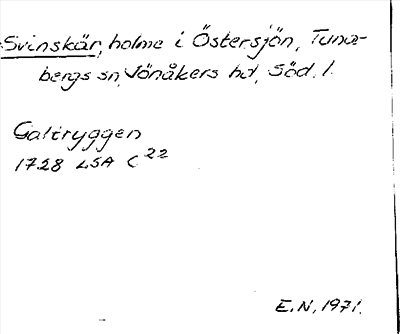 Svinskär, holme i Östersjön, Tuna-
bergs sn, Jönåkers hd, Söd. l.
Galtryggen
1728 LSA C 22
E.N. 1971.